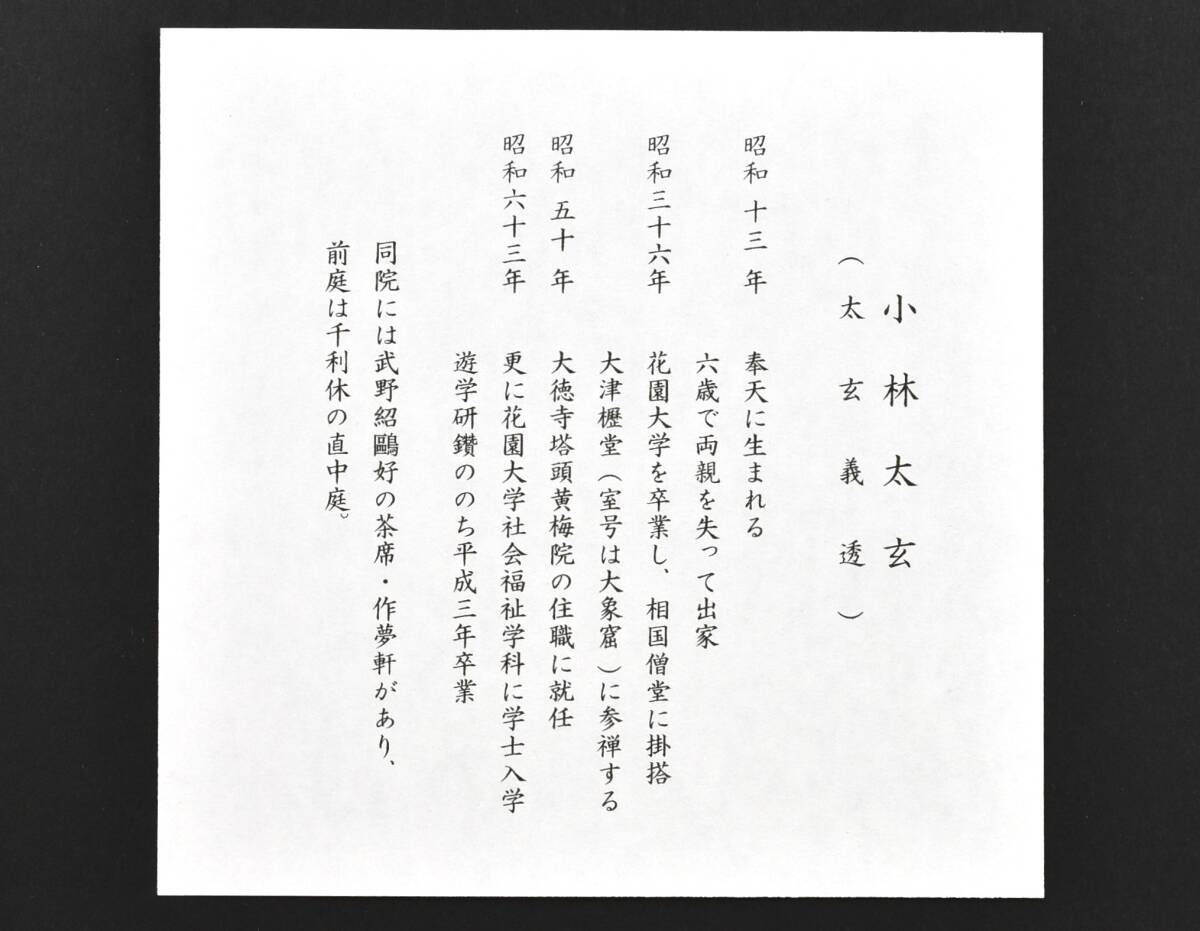 小林太玄
（太玄義透）
昭和十三年 奉天に生まれる
六歳で両親を失って出家
昭和三十六年 花園大学を卒業し、相国僧堂に掛搭
大津櫪堂（室号は大象窟）に参禅する
昭和五十年 大徳寺塔頭黄梅院の住職に就任
昭和六十三年 更に花園大学社会福祉学科に学士入学
遊学研鑽ののち平成三年卒業
同院には武野紹鷗好の茶席・作夢軒があり、
前庭は千利休の直中庭。